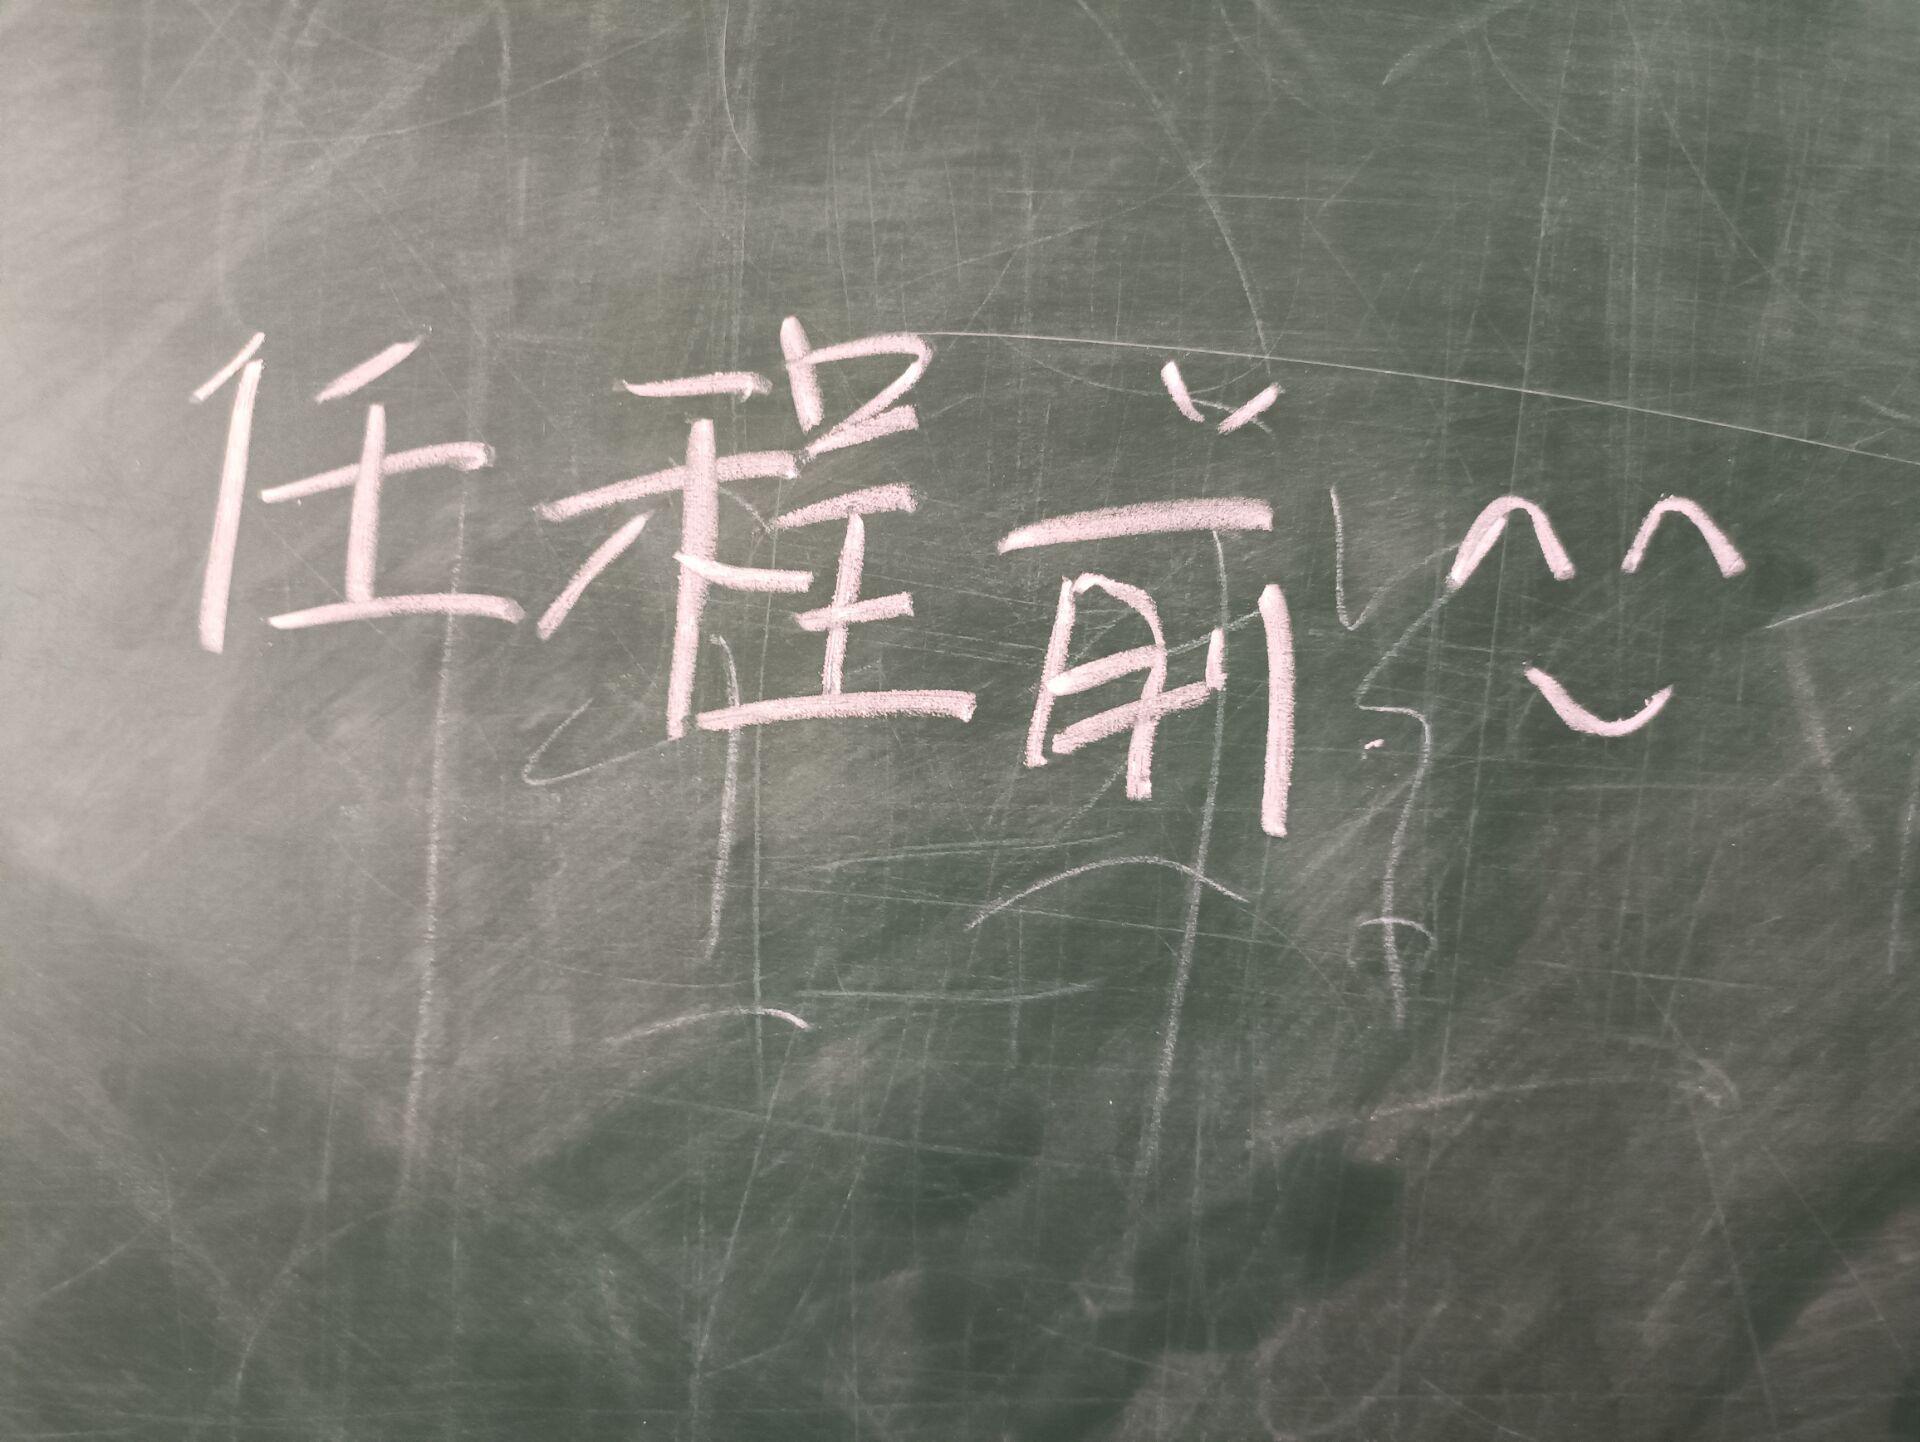 任程前